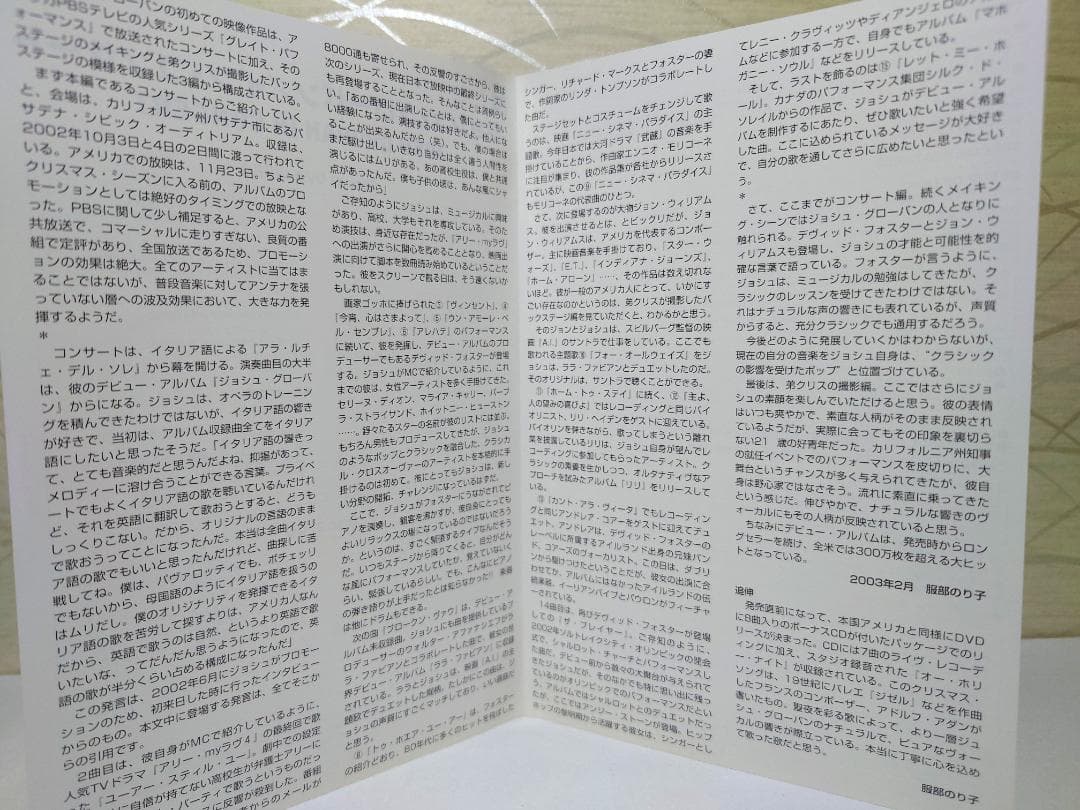 ローバンの初めての映像作品は、ア
PBSテレビの人気シリーズ『グレイト・パフ
ォーマンス』で放送されたコンサートに加え、その
ステージのメイキングと弟クリスが撮影したバック
ステージの模様を収録した3編から構成されている。
まず本編であるコンサートからご紹介していく
と、会場は、カリフォルニア州パサデナ市にあるパ
サデナ・シビック・オーディトリアム。収録は、
2002年10月3日と4日の2日間に渡って行われて
いる。アメリカでの放映は、11月23日。ちょうど
クリスマス・シーズンに入る前の、アルバムのプロ
モーションとしては絶好のタイミングでの放映とな
った。PBSに関して少し補足すると、アメリカの公
共放送で、コマーシャルに走りすぎない、良質の番
組で定評があり、全国放送であるため、プロモーシ
ョンの効果は絶大。全てのアーティストに当てはま
ることではないが、普段音楽に対してアンテナを張
っていない層への波及効果において、大きな力を発
揮するようだ。
*
コンサートは、イタリア語による『アラ・ルチ
ェ・デル・ソレ』から幕を開ける。演奏曲目の大半
は、彼のデビュー・アルバム『ジョシュ・グローバ
ン』からになる。ジョシュは、オペラのトレーニン
グを積んできたわけではないが、イタリア語の響き
が好きで、当初は、アルバム収録曲全てをイタリア
語にしたいと思ったそうだ。「イタリア語の響きっ
て、とても音楽的だと思うんだよね、抑揚があって、
メロディーに溶け合うことができる言葉。プライベ
ートでもよくイタリア語の歌を聴いているんだけれ
ど、それを英語に翻訳して歌おうとすると、どうも
しっくりこない。だから、オリジナルの言語のまま
で歌おうってことになったんだ。本当は全曲イタリ
ア語の歌でもいいと思ったんだけれど、曲探しに苦
戦してね。僕は、パヴァロッティでも、ボチェッリ
でもないから、母国語のようにイタリア語を扱うの
はムリだし。僕のオリジナリティを発揮できるイタ
リア語の歌を苦労して探すよりは、アメリカ人なん
だから、英語で歌うのは自然、というより英語で歌
いたいな、ってだんだん思うようになったので、英
語の歌が半分くらい占める構成になったんだ」
この発言は、2002年6月にジョシュがプロモー
ションのため、初来日した時に行ったインタビュー
からのもの。本文中に登場する発言は、全てそこか
らの引用です。
2曲目は、彼自身がMCで紹介しているように、
人気TVドラマ『アリー・myラヴ4』の最終回で歌
った『ユーアー・スティル・ユー』。劇中での設定
に自信が持てない高校生が弁護士アリーに
パーティで歌うというものだっ
に反響が殺到した。番組
者からのメールが
8000通も寄せられ、その反響のすごさから、彼は
次のシリーズ、現在日本で放映中の最終シリーズに
も再登場することとなった。そんなことは
「あの番組に出演したことは、僕にとってもい
い経験になった。演技するのは好きだよ。他人にな
ることが出来るんだから(笑)。でも、僕の場合は
まだ駆け出し。いきなり自分とは全く違う人間性を
演じるにはムリがある。あの高校生役は、僕と共通
点があったんだ。僕も子供の頃は、あんな風にシャ
イだったから」
ご存知のようにジョシュは、ミュージカルに興味
があり、高校、大学もそれを専攻している。そのた
め演技は、身近な存在だったが、『アリー・myラヴ』
への出演がさらに関心を高めることとなり、映画出
演に向けて脚本を数冊読み始めているということだ
った。彼をスクリーンで観る日は、そう遠くないか
もしれない。
画家ゴッホに捧げられた③『ヴィンセント』、④
『今宵、心はさまよって』、⑤『ウン・アモーレ・ペ
ル・センプレ』、⑥『アレハテ』のパフォーマンス
に続いて、彼を発掘し、デビュー・アルバムのプロ
デューサーでもあるデヴィッド・フォスターが登場
する。ジョシュがMCで紹介しているように、これ
までの彼は、女性アーティストを多く手掛けてきた。
セリーヌ・ディオン、マライア・キャリー、バーブ
ラ・ストライサンド、ホイットニー・ヒューストン
……。錚々たるスターの名前が彼のリストには並ぶ。
もちろん男性もプロデュースしてきたが、ジョシュ
のようなポップとクラシックを融合した、クラシカ
ル・クロスオーヴァーのアーティストを本格的に手
掛けるのは初めて。彼にとってもジョシュは、新し
い分野の開拓、チャレンジになっているはずだ。
ここで、ジョシュがフォスターにうながされてピ
アノを演奏し、観客を沸かすが、彼自身にとっても
よいリラックスの場になっているのではないだろう
か。というのは、すごく緊張するタイプなんだそう
だ。いつもステージから降りてくると、自分がどん
な風にパフォーマンスしていたか、覚えていないく
らい、緊張しているらしい。でも、こんなにピアノ
の弾き語りが上手だったとは知らなかった!!
は他にドラムもできる。
次の⑦『ブロークン・ヴァウ』は、デビュー・ア
ルバム未収録曲。ジョシュにも曲を提供しているプ
ロデューサーのウォルター・アファナシエフから
ラ・ファビアンとコラボした曲で、彼女の
界デビュー・アルバム『ララ・ファビアン』に収録
されている。ララとジョシュは、映画『A.I.』の主
題歌でデュエットした間柄。たしかにこの曲は、ジ
ョシュの声質にすごくマッチしており、いい選曲だ
と思う。
⑧『トゥ・ホエア・ユー・アー』は、フォスター
の紹介どおり、80年代に多くのヒットを飛ばした
シンガー、リチャード・マークスとフォスターの妻
で、作詞家のリンダ・トンプソンがコラボレートし
た曲だ。
ステージセットとコスチュームをチェンジして歌
うのは、映画『ニュー・シネマ・パラダイス』の主
題歌。今年日本では大河ドラマ『武蔵』の音楽を手
掛けていることから、作曲家エンニオ・モリコーネ
に注目が集まり、彼の作品集が各社からリリースさ
れているが、この⑨『ニュー・シネマ・パラダイス』
もモリコーネの代表曲のひとつ。
さて、次に登場するのが大物ジョン・ウィリアム
ス。彼を出演させるとは、とビックリだが、ジョ
ン・ウィリアムスは、アメリカを代表するコンポー
ザー。主に映画音楽を手掛けており、『スター・ウ
ォーズ』、『E.T.』、『インディアナ・ジョーンズ』、
『ホーム・アローン』……、その作品は数え切れな
いほど。彼が一般のアメリカ人にとって、いかにす
ごい存在なのかというのは、弟クリスが撮影したバ
ックステージ編を見ていただくと、わかるかと思う。
そのジョンとジョシュは、スピルバーグ監督の映
画『A.I.』のサントラで仕事をしている。ここでも
歌われる主題歌⑩『フォー・オールウェイズ』をジ
ョシュは、ララ・ファビアンとデュエットしたのだ。
そのオリジナルは、サントラで聴くことができる。
⑪『ホーム・トゥ・ステイ』に続く、⑫『主よ、
人の望みの喜びよ』ではレコーディングと同じバイ
オリニスト、リリ・ヘイデンをゲストに迎えている。
バイオリンを弾きながら、歌ってしまうという離れ
業を披露しているリリは、ジョシュ自身が望んでレ
コーディングに参加してもらったアーティスト。ク
ラシックの素養を生かしつつ、オルタナティブなア
プローチを試みたアルバム『リリ』をリリースして
いる。
⑬『カント・アラ・ヴィータ』でもレコーディン
グと同じアンドレア・コアーをゲストに迎えてデュ
エット。アンドレアは、デヴィッド・フォスターの
レーベルに所属するアイルランド出身の兄妹バン
ド、コアーズのヴォーカリスト。この日は、ダブリ
ンから駆けつけたということだが、彼女の出演に合
わせてか、アルバムにはなかったアイルランドの伝
統楽器、イーリアンパイプとバウロンがフィーチャ
ーされている。
14曲目は、再びデヴィッド・フォスターが登場
しての『ザ・プレイヤー』。ご存知のように、
2002年ソルトレイクシティ・オリンピックの閉会
式で、シャルロット・チャーチとパフォーマンスし
た曲だ。デビュー前から数々の大舞台が与えられて
きたジョシュだが、そのなかでも特に思い出に残っ
ているのがオリンピックでのパフォーマンスだとい
う。アルバムではシャルロットとのデュエットだっ
たが、ここではアンジー・ストーンが登場。ヒップ
ホップの黎明期から活躍する彼女は、シンガーとし
てレニー・クラヴィッツやディアンジェロのア
ムなどに参加する一方で、自身でもアルバム『マホ
ガニー・ソウル』などをリリースしている。
そして、ラストを飾るのは⑮『レット・ミー・ホ
ール』。カナダのパフォーマンス集団シルク・ド・
ソレイルからの作品で、ジョシュがデビュー・アル
バムを制作するにあたり、ぜひ歌いたいと強く希望
した曲。ここに込められているメッセージが大好き
で、自分の歌を通してさらに広めたいと思ったとい
う。
*
さて、ここまでがコンサート編。続くメイキン
グ・シーンではジョシュ・グローバンの人となりに
触れられる。デヴィッド・フォスターとジョン・ウ
ィリアムスも登場し、ジョシュの才能と可能性を的
確な言葉で語っている。フォスターが言うように、
ジョシュは、ミュージカルの勉強はしてきたが、ク
ラシックのレッスンを受けてきたわけではない。そ
れはナチュラルな声の響きにも表れているが、声質
からすると、充分クラシックでも通用するだろう。
今後どのように発展していくかはわからないが、
現在の自分の音楽をジョシュ自身は、“クラシック
の影響を受けたポップ”と位置づけている。
最後は、弟クリスの撮影編。ここではさらにジョ
シュの素顔を楽しんでいただけると思う。彼の表情
はいつも爽やかで、素直な人柄がそのまま反映され
ているようだが、実際に会ってもその印象を裏切ら
ない21歳の好青年だった。カリフォルニア州知事
の就任イベントでのパフォーマンスを皮切りに、大
舞台というチャンスが多く与えられてきたが、彼自
身は野心家ではなさそう。流れに素直に乗ってきた
という感じだ。伸びやかで、ナチュラルな響きのヴ
ォーカルにもその人柄が反映されていると思う。
ちなみにデビュー・アルバムは、発売時からロン
グセラーを続け、全米では300万枚を超える大ヒッ
トとなっている。
2003年2月 服部のり子
追伸
発売直前になって、本国アメリカと同様にDVD
に8曲入りのボーナスCDが付いたパッケージでのリ
リースが決まった。CDには7曲のライヴ・レコーデ
ィングに加え、スタジオ録音された『オー・ホリ
ー・ナイト』が収録されている。このクリスマス・
ソングは、19世紀にバレエ『ジゼル』などを作曲
したフランスのコンポーザー、アドルフ・アダンが
書いたもの。聖夜を彩る歌によって、より一層ジョ
シュ・グローバンのナチュラルで、ピュアなヴォー
カルの響きが際立っている。本当に丁寧に心を込め
て歌った歌だと思う。
服部のり子